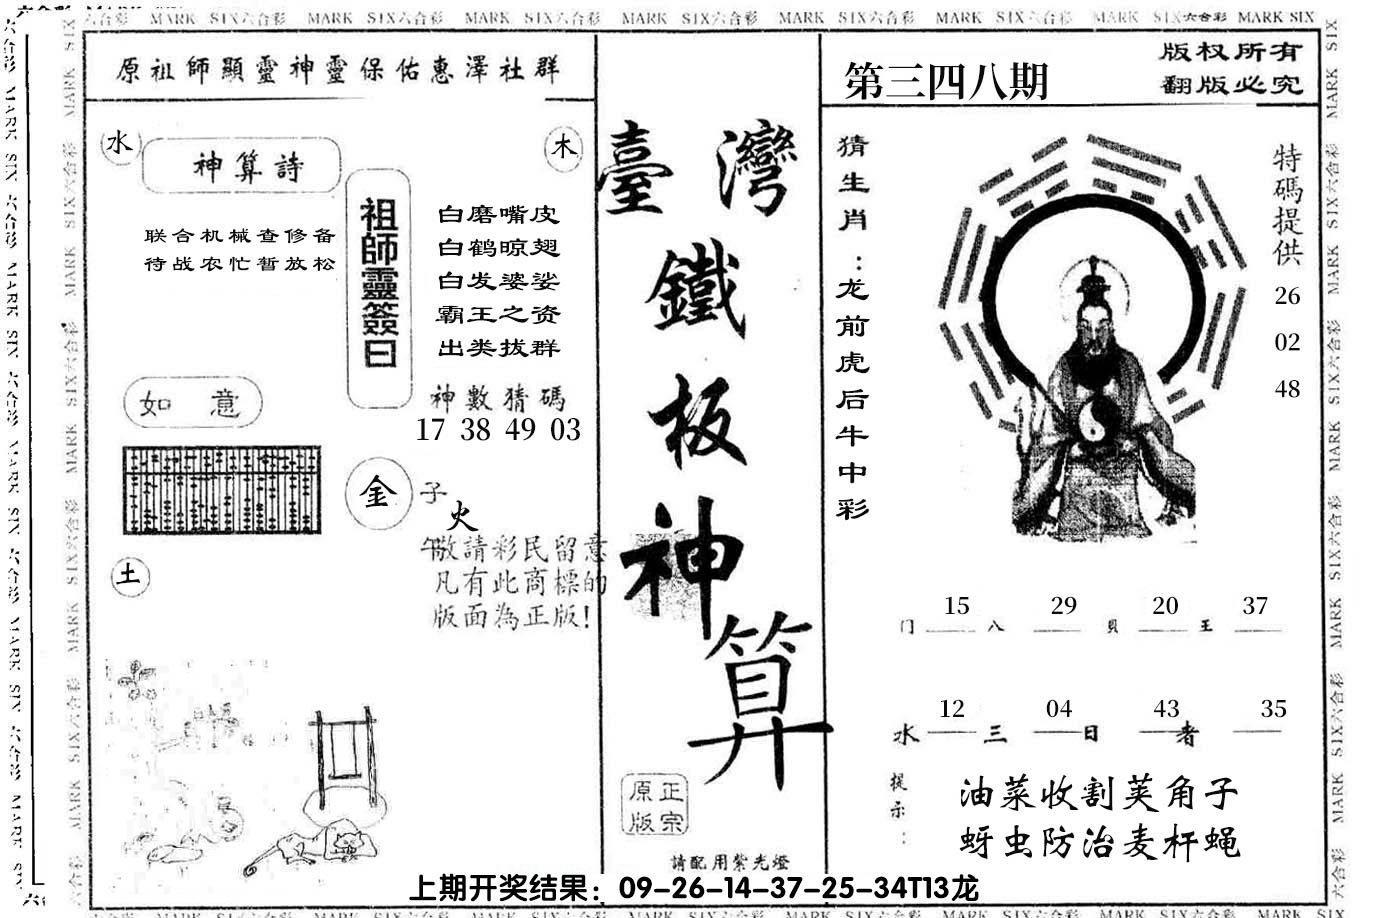 MARK SIX六合彩 MARK SIX六合彩 MARK SIX六合彩 MARK SIX六合彩 MARK SIX六合彩 MARK SIX六合彩 MARK SIX六合彩 MARK SIX
原祖師顯靈神靈保佑惠澤社群
水
神算詩
木
联合机械查修备
待战农忙暂放松
祖師靈簽曰
白磨嘴皮
白鹤晾翅
白发婆娑
霸王之资
出类拔群
神數猜碼
17 38 49 03
如 意
金
子
火
午
敬請彩民留意
凡有此商標的
版面為正版!
土
臺灣
鐵
板
神
算
原正
版宗
請配用紫光燈
第三四八期
版权所有
翻版必究
猜生肖：龙前虎后牛中彩
特碼提供
26
02
48
15 29 20 37
门 八 貝 王
12 04 43 35
水 三 日 者
提示：
油菜收割荚角子
蚜虫防治麦杆蝇
上期开奖结果：09-26-14-37-25-34T13龙